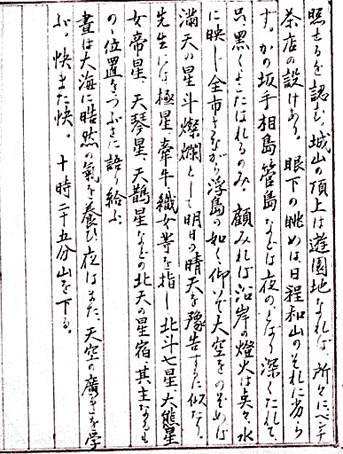 照せるを認む。城山の頂上は遊園地なれば、所々にベンチ
茶店の設けあり。眼下の眺めは日和山のそれに劣ら
ず。かの坂手相島菅島などは夜のとばり深くたれて
黒くよこたはれるのみ。顧みれば沿岸の燈火は水
に映じ全市さながら浮島の如く、仰いで大空をのぞめば
満天の星斗燦爛として明日の晴天を豫告するに似たり。
先生には極星牽牛織女等を指し北斗七星大熊星
女帝星、天琴星、天鵲星などの北天の星宿、其主なるも
の位置をつぶさに語り給ふ。
晝は大海に晧然の氣を養ひ、夜はまた、天空の廣きを学
ぶ。快また快。十時二十五分山を下る。